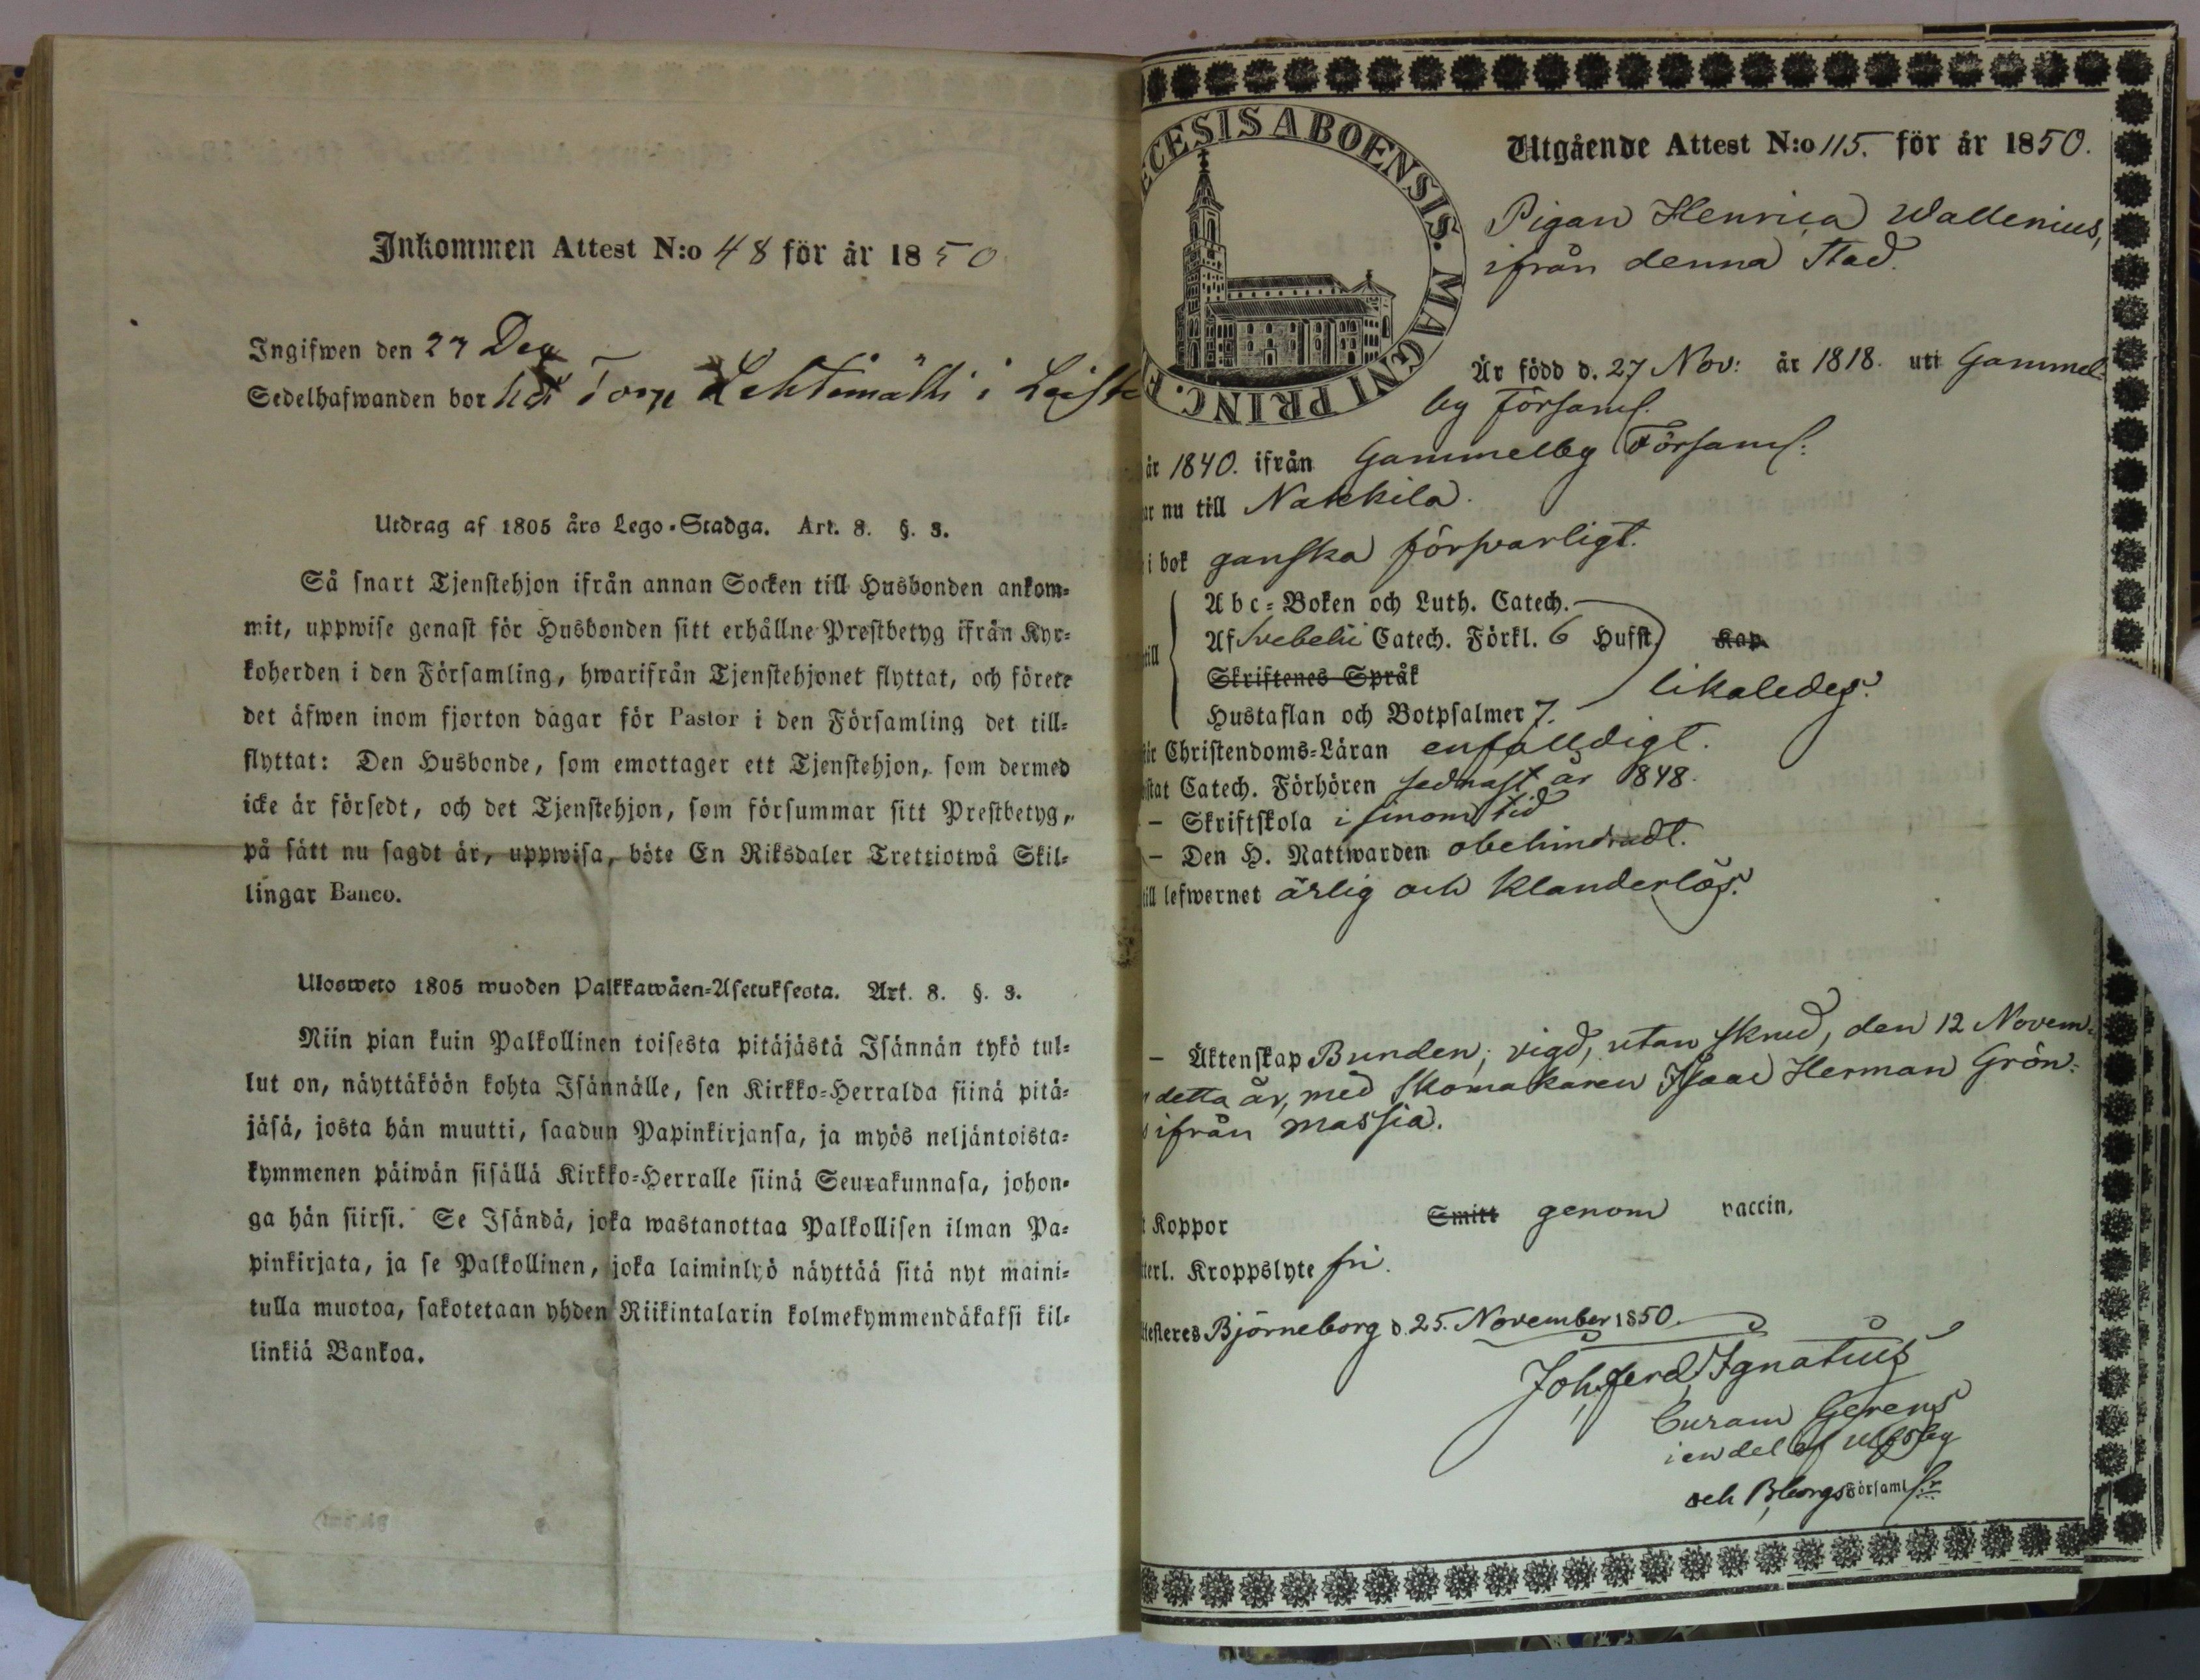 Inkommen Attest N:o 48 för år 1850
Ingifwen den 27 Dec
Sedelhafwanden bor hos Torp Lehtimäki i
Utdrag af 1805 års Lego-Stadga. Art. 8. §. 3.
Så snart Tjenstehjon ifrån annan Socken till Husbonden ankom-
mit, uppwise genast för Husbonden sitt erhållne Prestbetyg ifrån Kyr-
koherden i den Församling, hwarifrån Tjenstehjonet flyttat, och förete
det äfwen inom fjorton dagar för Pastor i den Församling det till-
flyttat: Den Husbonde, som emottager ett Tjenstehjon, som dermed
icke är försedt, och det Tjenstehjon, som försummar sitt Prestbetyg,
på sätt nu sagdt är, uppwisa, böte En Riksdaler Trettiotwå Skil-
lingar Banco.
Ulosweto 1805 wuoden Palkkawäen-Asetuksesta. Art. 8. §. 3.
Niin pian kuin Palkollinen toisesta pitäjästä Isännän tykö tul-
lut on, näyttäköön kohta Isännälle, sen Kirkko-Herralda siinä pitä-
jäsä, josta hän muutti, saadun Papinkirjansa, ja myös neljäntoista-
kymmenen päiwän sisällä Kirkko-Herralle siinä Seurakunnasa, johon-
ga hän siirsi. Se Isändä, joka wastanottaa Palkollisen ilman Pa-
pinkirjata, ja se Palkollinen, joka laiminlyö näyttää sitä nyt maini-
tulla muotoa, sakotetaan yhden Riikintalarin kolmekymmendäkaksi kil-
linkiä Bankoa.
ECESIS ABOENSIS. MAGNI PRINC. F
Utgående Attest N:o 115. för år 1850.
Pigan Henrica Wallenius,
ifrån denna Stad.
Är född d. 27 Nov: år 1818. uti Gammel-
by Församl.
år 1840. ifrån Gammelby Församl:
ar nu till Nakkila.
i bok ganska försvarligt.
till
Abc-Boken och Luth. Catech.
Af Svebelii Catech. Förkl. 6 Hufst. Kap.
Skriftenes Språk
likaledes.
Hustaflan och Botpsalmer 7.
Christendoms-Läran enfalldigt.
stat Catech. Förhören sednast år 1848.
– Skriftskola i sinom tid
– Den H. Nattwarden obehindradt.
till lefwernet ärlig och klanderlös.
– Äktenskap Bunden; vigd, utan skrud, den 12 Novem-
detta år, med Skomakaren Isaac Herman Grön-
ifrån Massia.
Koppor Smitt genom vaccin.
terl. Kroppslyte fri.
ttesteres Björneborg d. 25. November 1850.
Joh. Ferd. Ignatius
Curam Gerens
i en del af Ulfsby
och Bborgs Församl:r